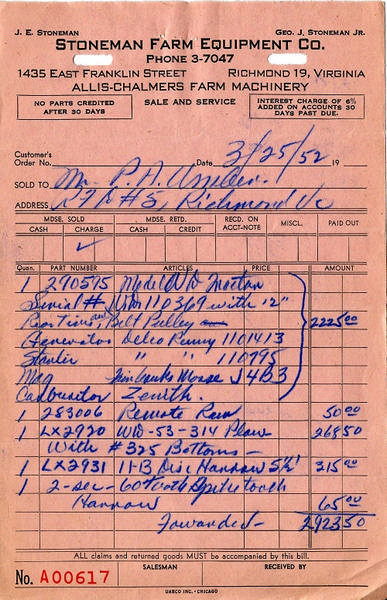 J. E. STONEMAN GEO. J. STONEMAN JR.
STONEMAN FARM EQUIPMENT CO.
PHONE 3-7047
1435 EAST FRANKLIN STREET RICHMOND 19, VIRGINIA
ALLIS-CHALMERS FARM MACHINERY
NO PARTS CREDITED AFTER 30 DAYS SALE AND SERVICE INTEREST CHARGE OF 6% ADDED ON ACCOUNTS 30 DAYS PAST DUE.
Customer's
Order No. Date 3/25/52 19
SOLD TO Mr. P. A.
ADDRESS RFD #5, Richmond Va
MDSE. SOLD MDSE. RETD. RECD. ON ACCT-NOTE MISCL. PAID OUT
CASH CHARGE CASH CHARGE
✓
Quan. PART NUMBER ARTICLES PRICE AMOUNT
1 290595 Model WD Tractor
Serial # WD 110369 with 12"
Rear Tires, and Belt Pulley 2225 00
Generator Delco Remy 1101413
Starter " " 110795
Mag Fairbanks Morse J4B3
Carburitor Zenith.
1 283006 Remote Ram 50 00
1 LX2920 WD-53-314 Plow 268 50
With #325 Bottoms
1 LX2931 11-13 Disc Harrow 5½' 315 00
1 2-sec- 60 tooth Spike tooth
Harrow 65 00
Forwarded- 2923 50
ALL claims and returned goods MUST be accompanied by this bill.
No. A00617 SALESMAN RECEIVED BY
UARCO INC. - CHICAGO